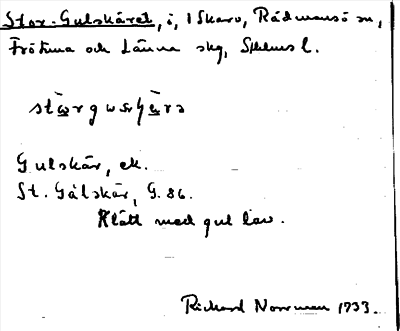 Stor-Gulskäret, i, i Skarv, Rådmansö sn,
Frötuna och Länna skg, Sthlms l.
Gulskär, ek.
St. Gålskär, G. 86.
Klätt med gul lav.
Richard Norrman 1933.